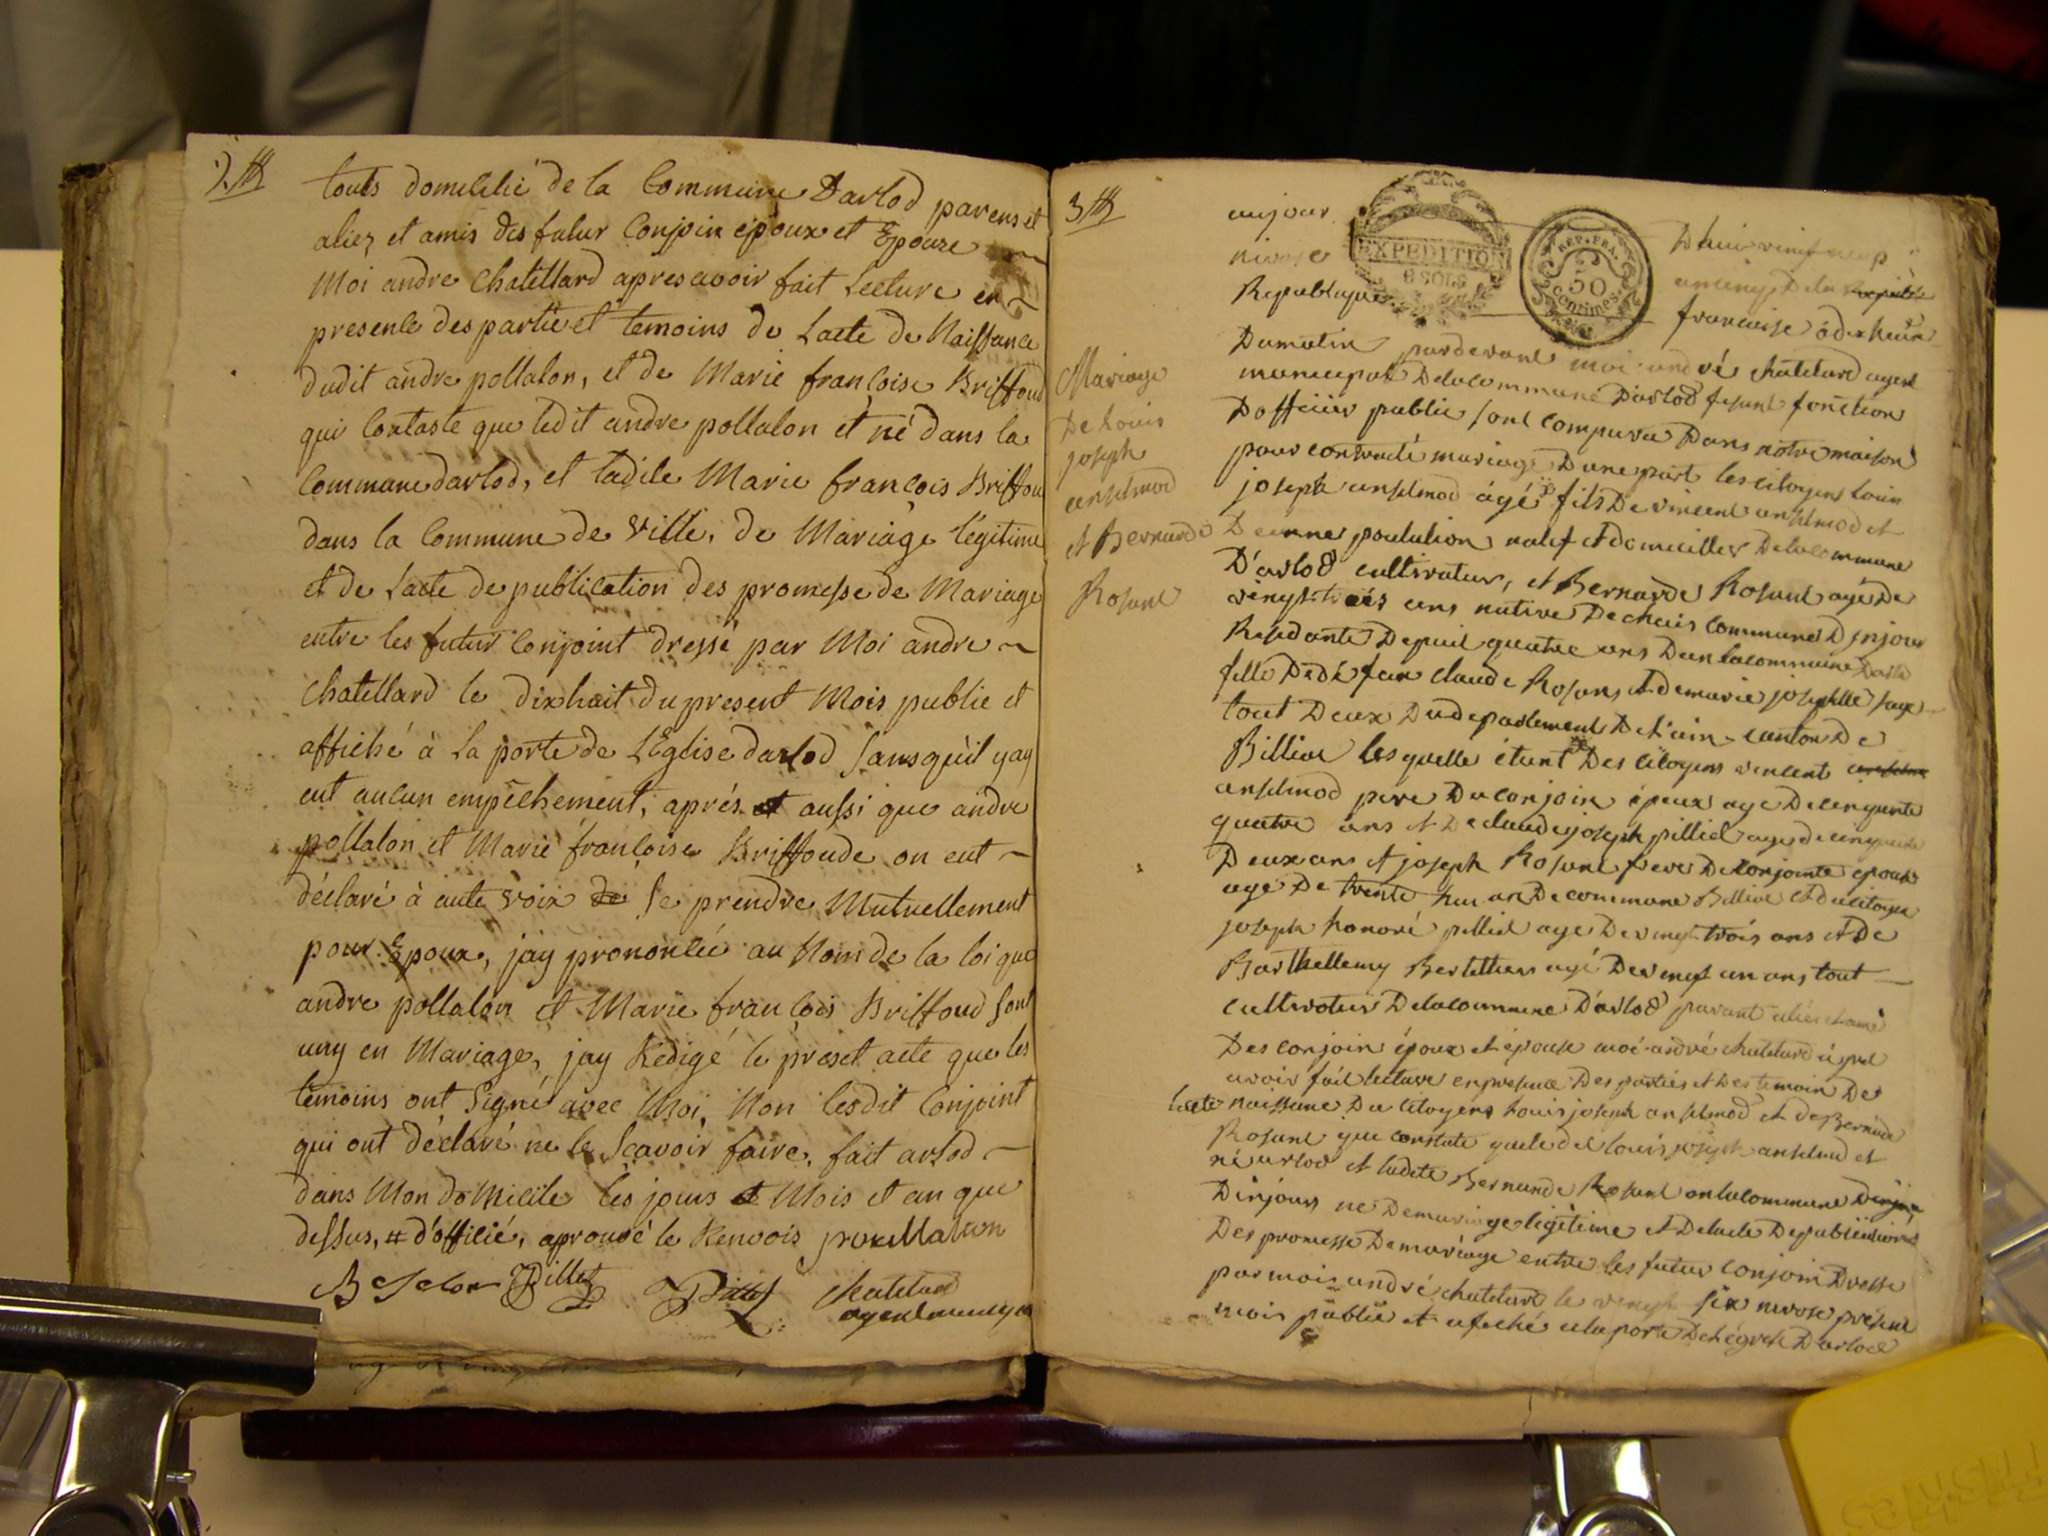 touts domicilié de la Commune Darlod parens et
aliez et amis des futur Conjoin époux et Epouze
Moi andre Chatellard apres avoir fait Lecture en
presence des partie et temoins de Lacte de Naissance
dudit andre pollalon, et de Marie françoise Briffoud
qui Contaste que ledit andre pollalon et né dans la
Commune darlod, et ladite Marie françois Briffou
dans la Commune de Ville, de Mariage légitime
et de Lacte de publication des promesse de Mariage
entre les futur Conjoint dressé par Moi andre
Chatellard le dixhuit du present Mois publié et
affiché à La porte de L'Eglise darlod Sans qu'il y ay
eut aucun empêchement, aprés et aussi que andre
pollalon et Marie françoise Briffoude on eut
déclaré à aute voix de Se prendre Mutuellement
pour Epoux, jay prononcée au Nom de la loi que
andre pollalon et Marie françois Briffoud Sont
uny en Mariage, jay Rédigé le preset acte que les
temoins ont Signé avec Moi, Non lesdit Conjoint
qui ont déclaré ne le Scavoir faire, fait arlod
dans Mon doMicile les jours et Mois et an que
dessus, # d'officié, aprouvé le Renvois
Billet
Chatelard
agent municipa
3
Mariage
De Louis
joseph
anselmod
et Bernarde
Rosant
aujour D'hui
nivose
EXPEDITION
6 SOLS
REP. FRA.
50
centimes
Republique francaise à dix heure
Dumatin pardevant moi andré chatelard agent
municipal Delacommune D'arlod fesant fonction
Dofficier public sont comparu Dans notre maison
pour contracté mariage D'une part les citoyens Louis
joseph anselmod âgé fils De vincent anselmod et
De natif et domicillier Delacommune
D'arlod cultivateur, et Bernarde Rosant agé De
vingt trois ans native De commune D injoux
Residante Depuis quatre ans Dans lacommune Darlo
fille Claude Rosans et De marie josephte
tout Deux Dudepartement De L'ain canton De
Billiat lesquelle étant Des citoyens vincent
anselmod pere Du conjoin époux agé De cinquante
quatre ans et De claude joseph pilliet age de cinquante
Deux ans et joseph Rosant frere De conjointe épouse
agé De trente De commune Billiat et du citoyen
joseph honoré pilliet agé De vingt trois ans et De
Barthellemy agé De vingt un ans tout
cultivateurs Delacommune D'arlod parant aliés et ami
Des conjoin époux et épouse moi andré chatelard à pré
avoir fait lecture en presence Des parties et Des temoin De
lacte naissance Du citoyens Louis joseph anselmod et de Bernarde
Rosant que constate que ledet Louis joseph anselmod et
né arlod et ladete Bernarde Rosant en lacommune
D'injoux né De mariage légitime et De lacte De publications
Des promesse De mariage entre les futur conjoin Dressé
par moi andré chatelard le vingt six nivose présent
mois publié et afiché ala porte De D'arlod